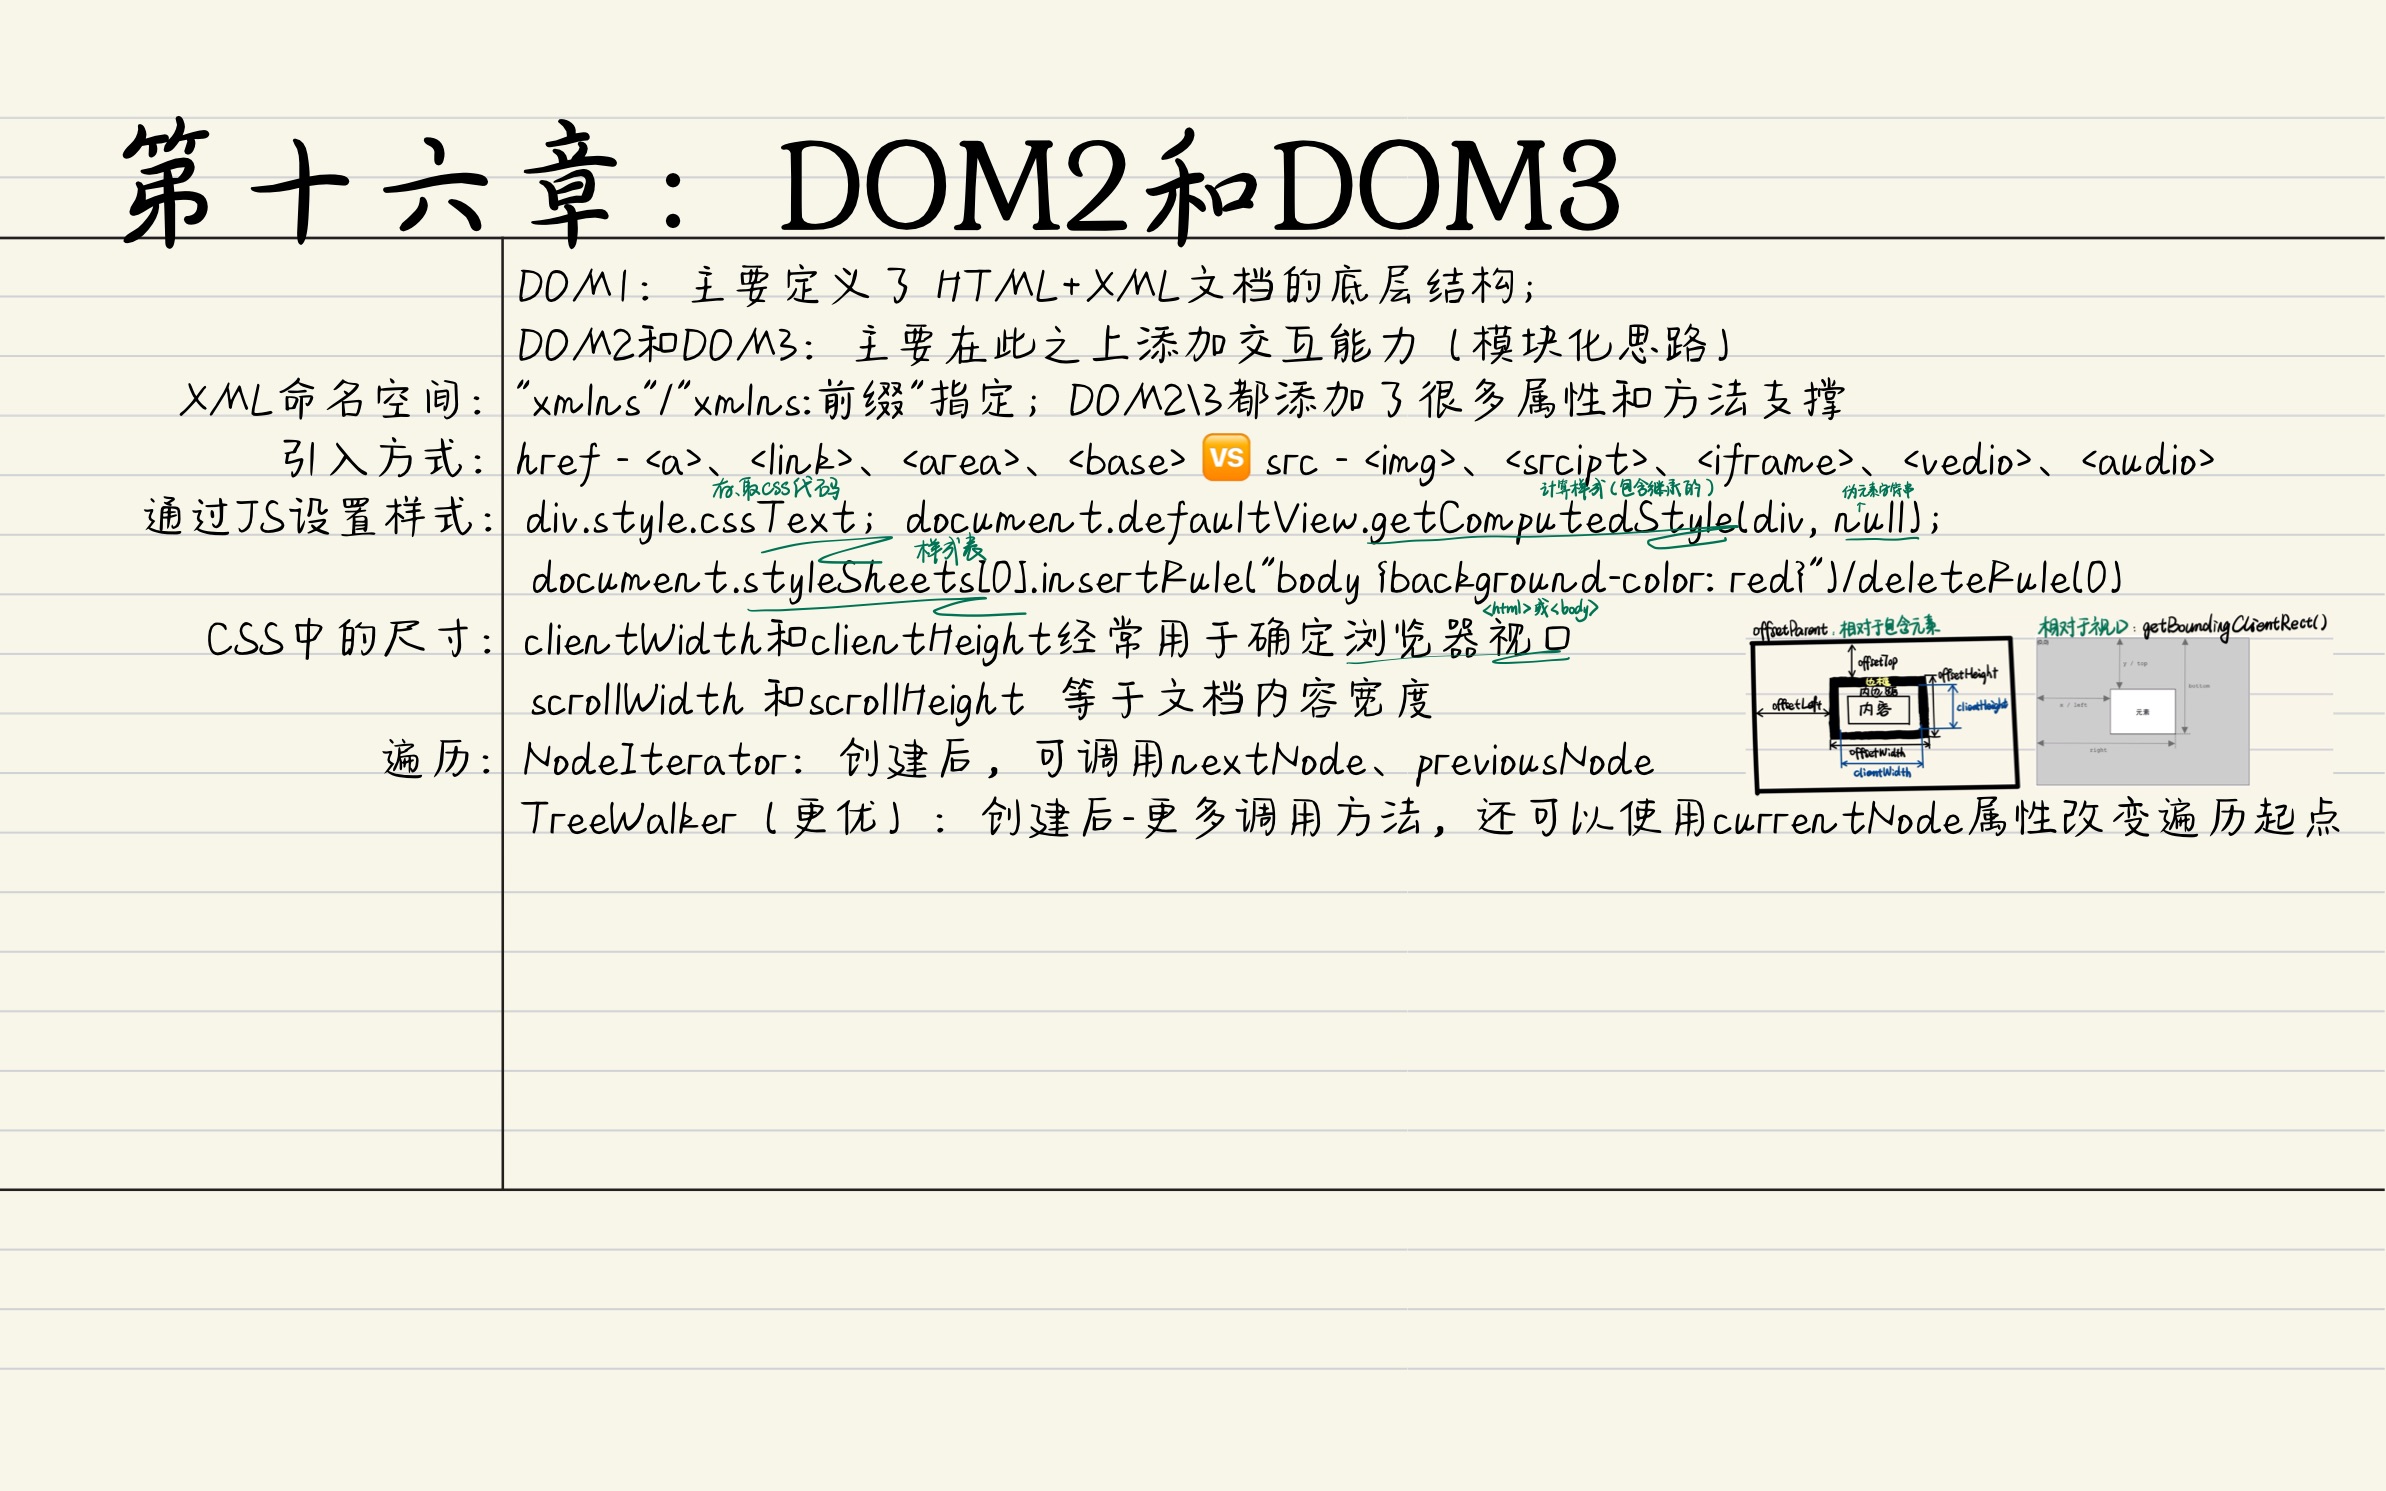 第十六章：DOM2和DOM3
DOM1：主要定义了 HTML+XML文档的底层结构；
DOM2和DOM3：主要在此之上添加交互能力（模块化思路）
XML命名空间：
"xmlns"/"xmlns:前缀"指定；DOM2\3都添加了很多属性和方法支撑
引入方式：
href - <a>、<link>、<area>、<base> 🆚 src - <img>、<srcipt>、<iframe>、<vedio>、<audio>
存、取css代码
计算样式（包含继承的）
伪元素字符串
↑
通过JS设置样式：
div.style.cssText； document.defaultView.getComputedStyle(div, null)；
样式表
document.styleSheets[0].insertRule("body {background-color: red}")/deleteRule(0)
<html>或<body>
CSS中的尺寸：
clientWidth和clientHeight经常用于确定浏览器视口
scrollWidth 和scrollHeight 等于文档内容宽度
offsetParent：相对于包含元素
offsetTop
offsetHeight
边框
内边距
内容
offsetLeft
clientHeight
offsetWidth
clientWidth
相对于视口：getBoundingClientRect()
y / top
bottom
x / left
元素
right
遍历：
NodeIterator：创建后，可调用nextNode、previousNode
TreeWalker（更优）：创建后-更多调用方法，还可以使用currentNode属性改变遍历起点